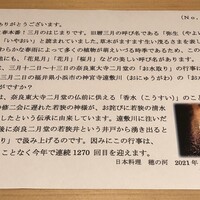 (No.
ありがとうございます。
春本番！三月のはじまりです。旧暦三月の呼び名である「弥生（やよ
「いやおい」と読まれていました。草木がますます生い茂る生を表し
わらかな春雨によって多くの植物が萌えいづる時季であるため、この
「花見月」「花月」「桜月」などの美しい呼び名があります。
三月十二日～十三日の奈良東大寺二月堂の「お水取り」の行事に
三月二日の福井県小浜市の神宮寺遠敷川（おにゅうがわ）の「お
で知られています。
は、奈良東大寺二月堂の仏前に供える「香水（こうすい）」のこと
修二会に遅れた若狭の神様が、お詫びに若狭の清水
したという伝承に由来しています。遠敷川に注いだ
後に奈良二月堂の若狭井という井戸から湧き出ると
り」で汲み上げるのです。因みにこの行事は、
ことなく今年で連続1270回目を迎えます。
日本料理 穂の河 2021年